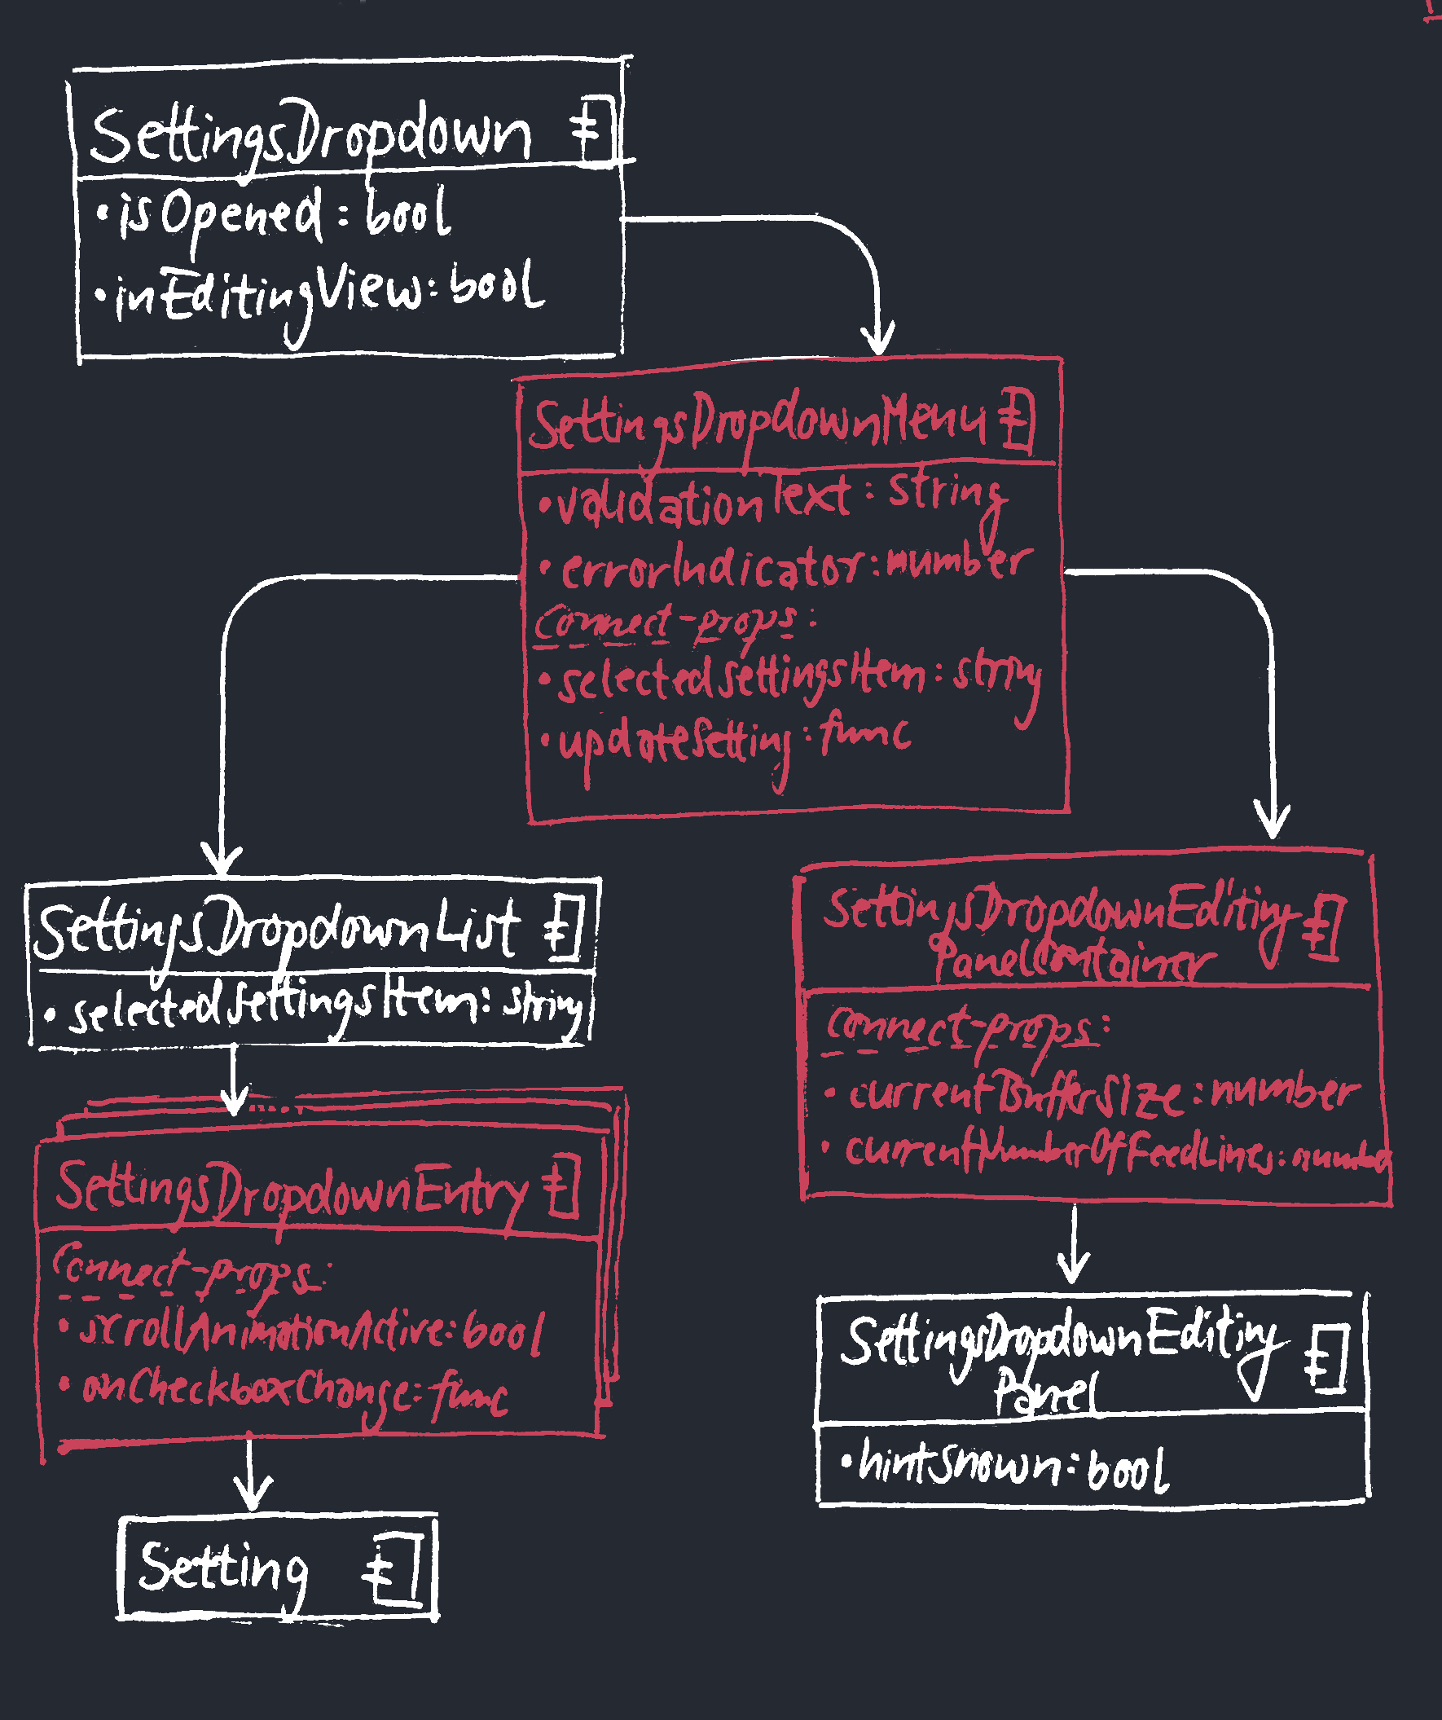 SettingsDropdown
•isOpened: bool
•inEditingView: bool
SettingsDropdownMenu
•validationText: string
•errorIndicator: number
Connect-props:
•selectedSettingsItem: string
•updateSetting: func
SettingsDropdownList
•selectedSettingsItem: string
SettingsDropdownEntry
Connect-props:
•scrollAnimationActive: bool
•onCheckboxChange: func
Setting
SettingsDropdownEditing
PanelContainer
Connect-props:
•currentBufferSize: number
•currentNumberOfFeedLines: number
SettingsDropdownEditing
Panel
•hintShown: bool